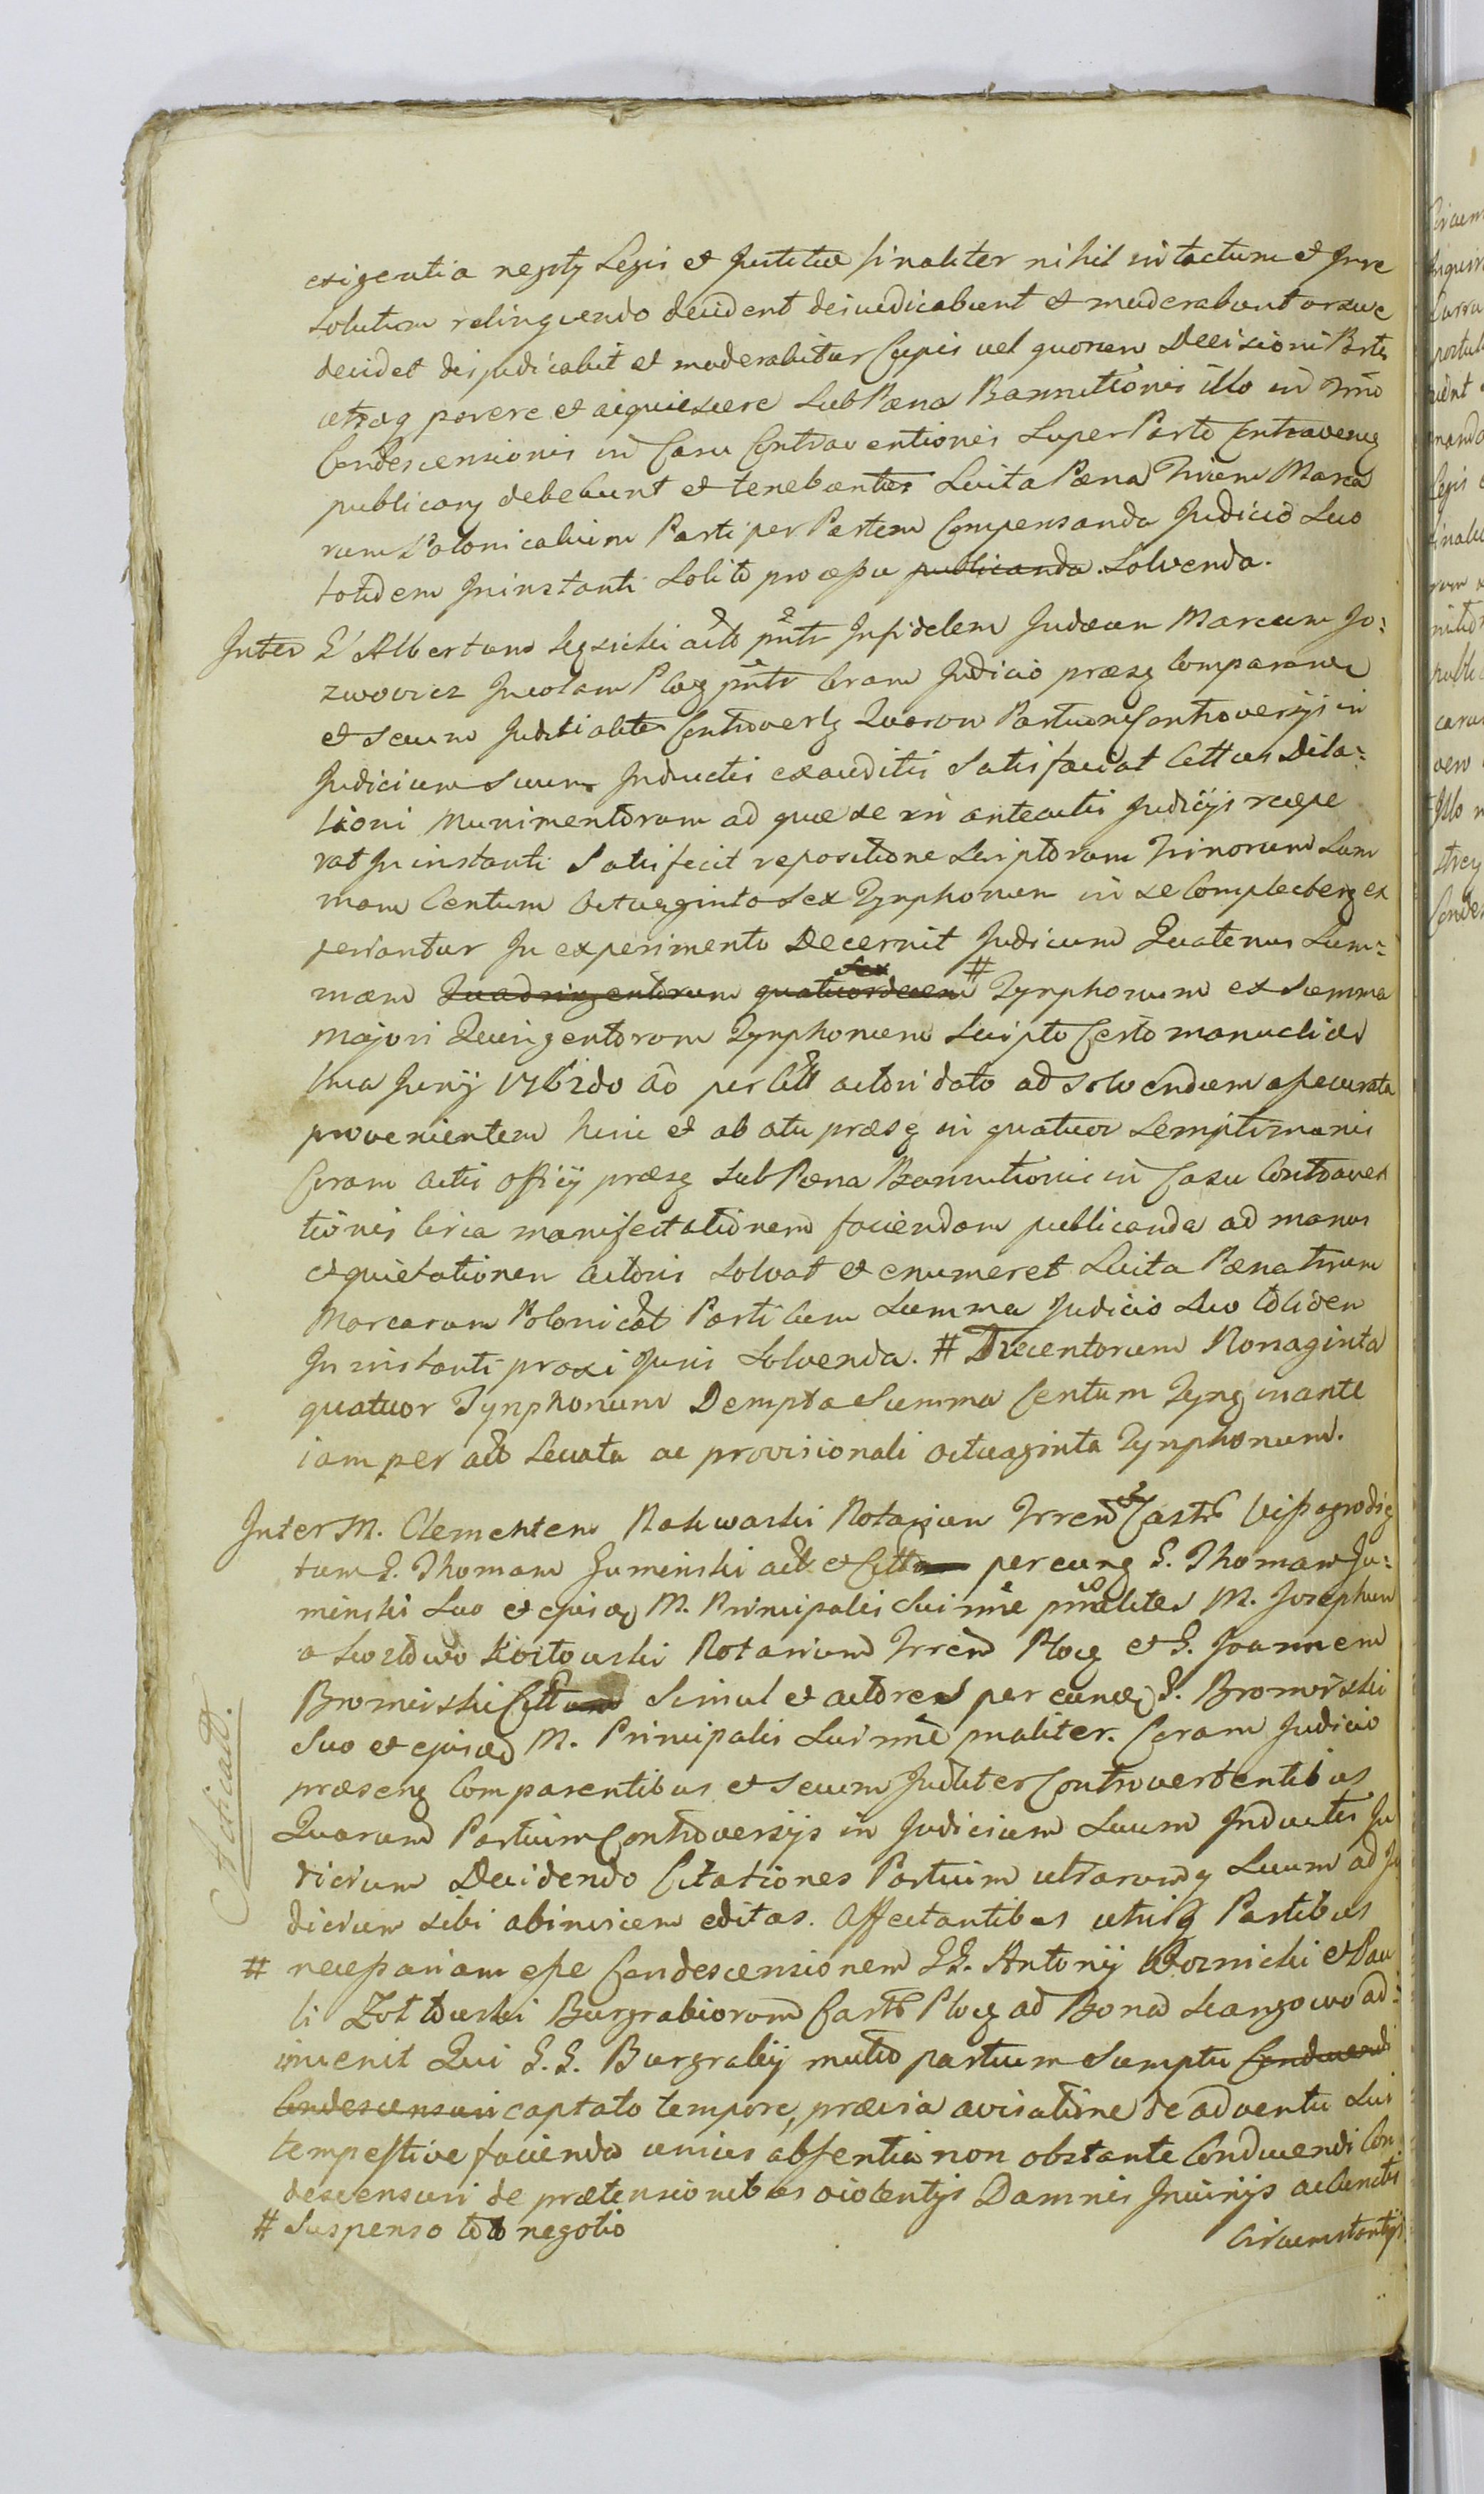 exigentia negotÿ Legis et Justitiæ finaliter nihil intactum et Jure
solutum relinquendo decident dejudicabunt et moderabuntur sive
decidet dijudicabit et moderabitur Cujus vel quorum Decisioni Partes
utraq parere et acquiescere sub Pæna Bannitionis illo in
Condescensionis in Casu Contraventionis super Parte Contraveng
publicang debebunt et tenebuntur Luita Pæna Trium Marca
rum Polonicalium Parti per Partem Compensanda Judicio suo
totidem Ininstanti solito processu publicanda. Solvenda.
Inter G. Albertum act Infidelem Judæum Marcum Jo:
zwowicz Incolam Plocg Coram Judicio præsg Comparang
et secum Judicialiter Controvertg Quorum Partium Controversÿs in
Judicium suum Inductis exauditis Satisfaciat Cittus Dila:
tioni Munimentorum ad quæ se in anteactis Judicÿs recepe
rat Ininstanti Satisfecit repositione scriptorum Trinorum Sum
mam Centum Octuaginta Sex Tynphonum in se Complecteng ex
periantur In experimento Decernit Judicium Quatenus Sum:
mam Quadringentorum quatuordecem Sex # Tynphonum ex Summa
majori Quingentorum Tynphonum scripto Certo manuali die
Junÿ 1762do Ao per Citt actori dato ad solvendum assecurata
provenientem hinc et ab actu præsg in quatuor Septimanis
Coram Actis Officÿ præsg sub Pæna Bannitionis in Casu Contraven
tionis circa manifestationem faciendam publicanda ad manus
et quietationem Actoris solvat et enumeret Luita Pæna trium
Marcarum Polonical Parti cum Summa Judicio suo totidem
Ininstanti praxi Juris Solvenda. # Ducentorum Nonaginta
quatuor Tynphonum Dempta Summa Centum Tyng inante
iam per act Levata ac provisionali octuaginta Tynphonum.
Inter M. Clementem Nakwaski Notarium Trren Castr
tum G. Thomam Juminski act et Citt per eung G. Thomam Ju:
minski suo et ejusd M. Principalis sui M. Josephum
a Kostowski Notarium Trren Plocg et G. Joannem
Bromirski Cittum Simul et actores per eund G. Bromirski
suo et ejusd M. Principalis sui Coram Judicio
præseng Comparentibus et secum Judliter Controvertentibus
Quarum Partium Controversÿs in Judicium suum Inductis Ju
dicium Decidendo Citationes Partium utrarumq suum ad Ju
dicium sibi abinvicem editas. Affectantibus utrisq Partibus
# necessariam esse Condescensionem GG. Antonÿ et Pau
li Burgrabiorum Castr Plocg ad Bona ad:
invenit Qui G.G. Burgrabÿ mutuo partium sumptu Conducendi
Condescensuri captato tempore, prævia avisatione de adventu sui
tempestive facienda unius absentia non obstante Conducendi Con
descensuri de prætensionibus violentÿs Damnis Injurÿs ac cunctis
# Suspenso toto negotio
Circumstantÿs
Acticatt.